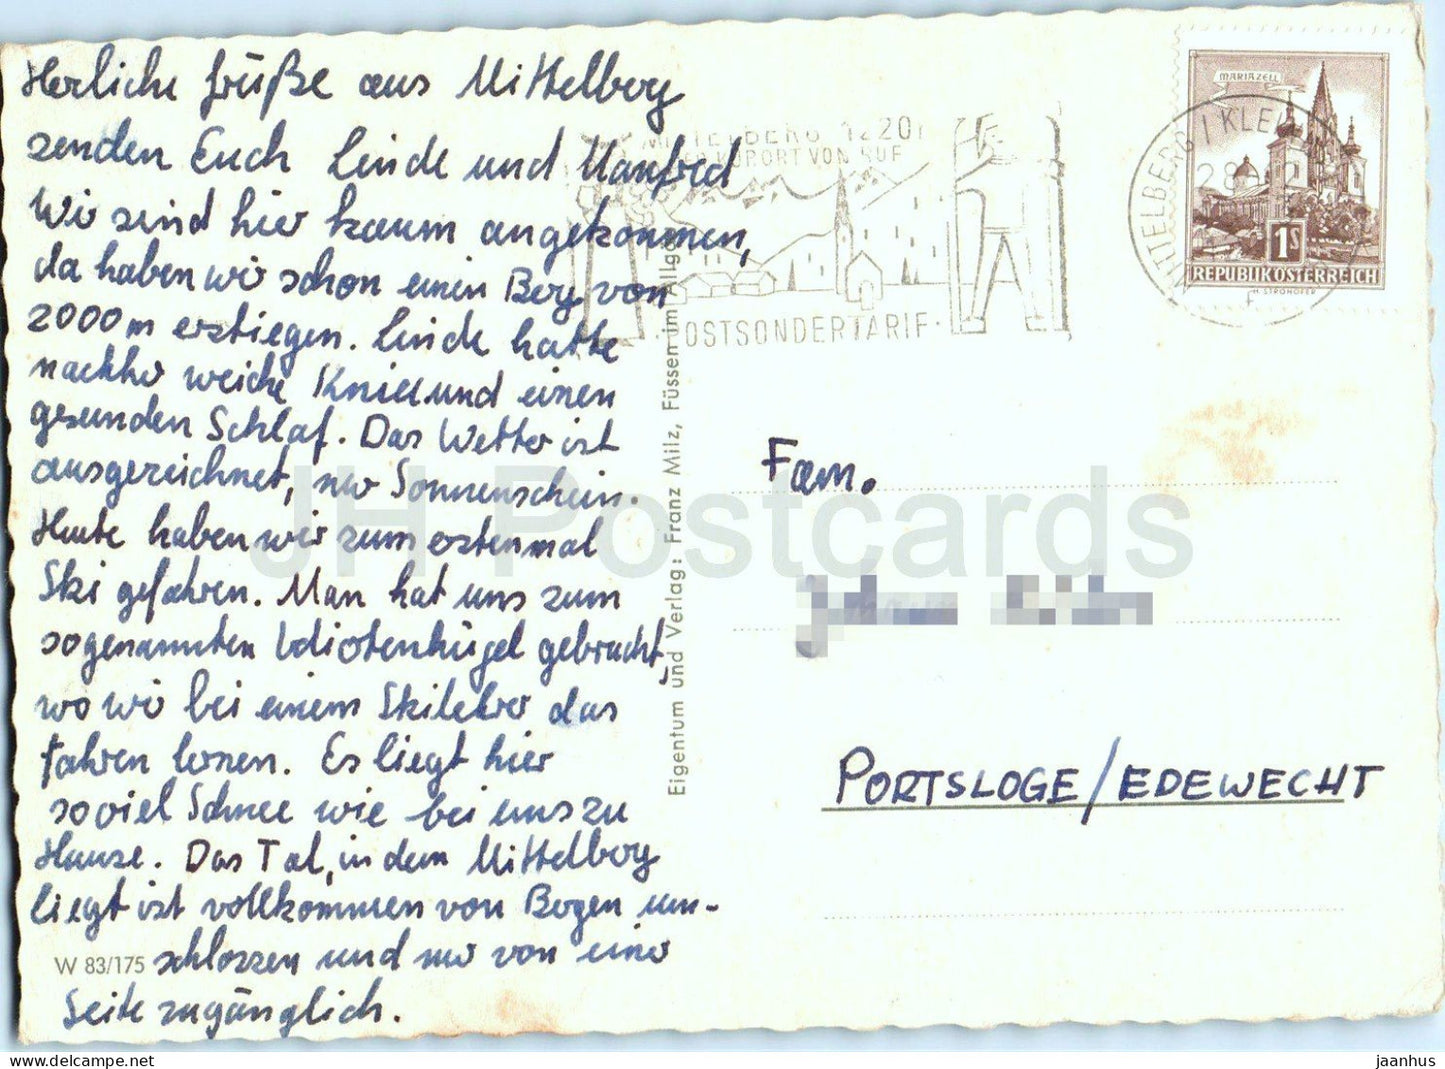 Herliche Grüße aus Mittelberg
senden Euch Linde und Manfred
Wir sind hier kaum angekommen,
da haben wir schon einen Berg von
2000m erstiegen. Linde hatte
nachher weiche Knie und einen
gesunden Schlaf. Das Wetter ist
ausgezeichnet, nur Sonnenschein.
Heute haben wir zum erstenmal
Ski gefahren. Man hat uns zum
sogenannten Idiotenhügel gebracht,
wo wir bei einem Skilehrer das
fahren lernen. Es liegt hier
soviel Schnee wie bei uns zu
Hause. Das Tal, in dem Mittelberg
liegt ist vollkommen von Bergen um-
schlossen und nur von einer
Seite zugänglich.
W 83/175
Eigentum und Verlag: Franz Milz, Füssen im Allgäu
MITTELBERG 1220
KURORT VON RUF
POSTSONDERTARIF
MITTELBERG / KLE
28
MARIAZELL
1S
REPUBLIK ÖSTERREICH
H. STROHOFER
Fam.
PORTSLOGE/EDEWECHT
JH Postcards
jaanhus
HIP POSTCARD